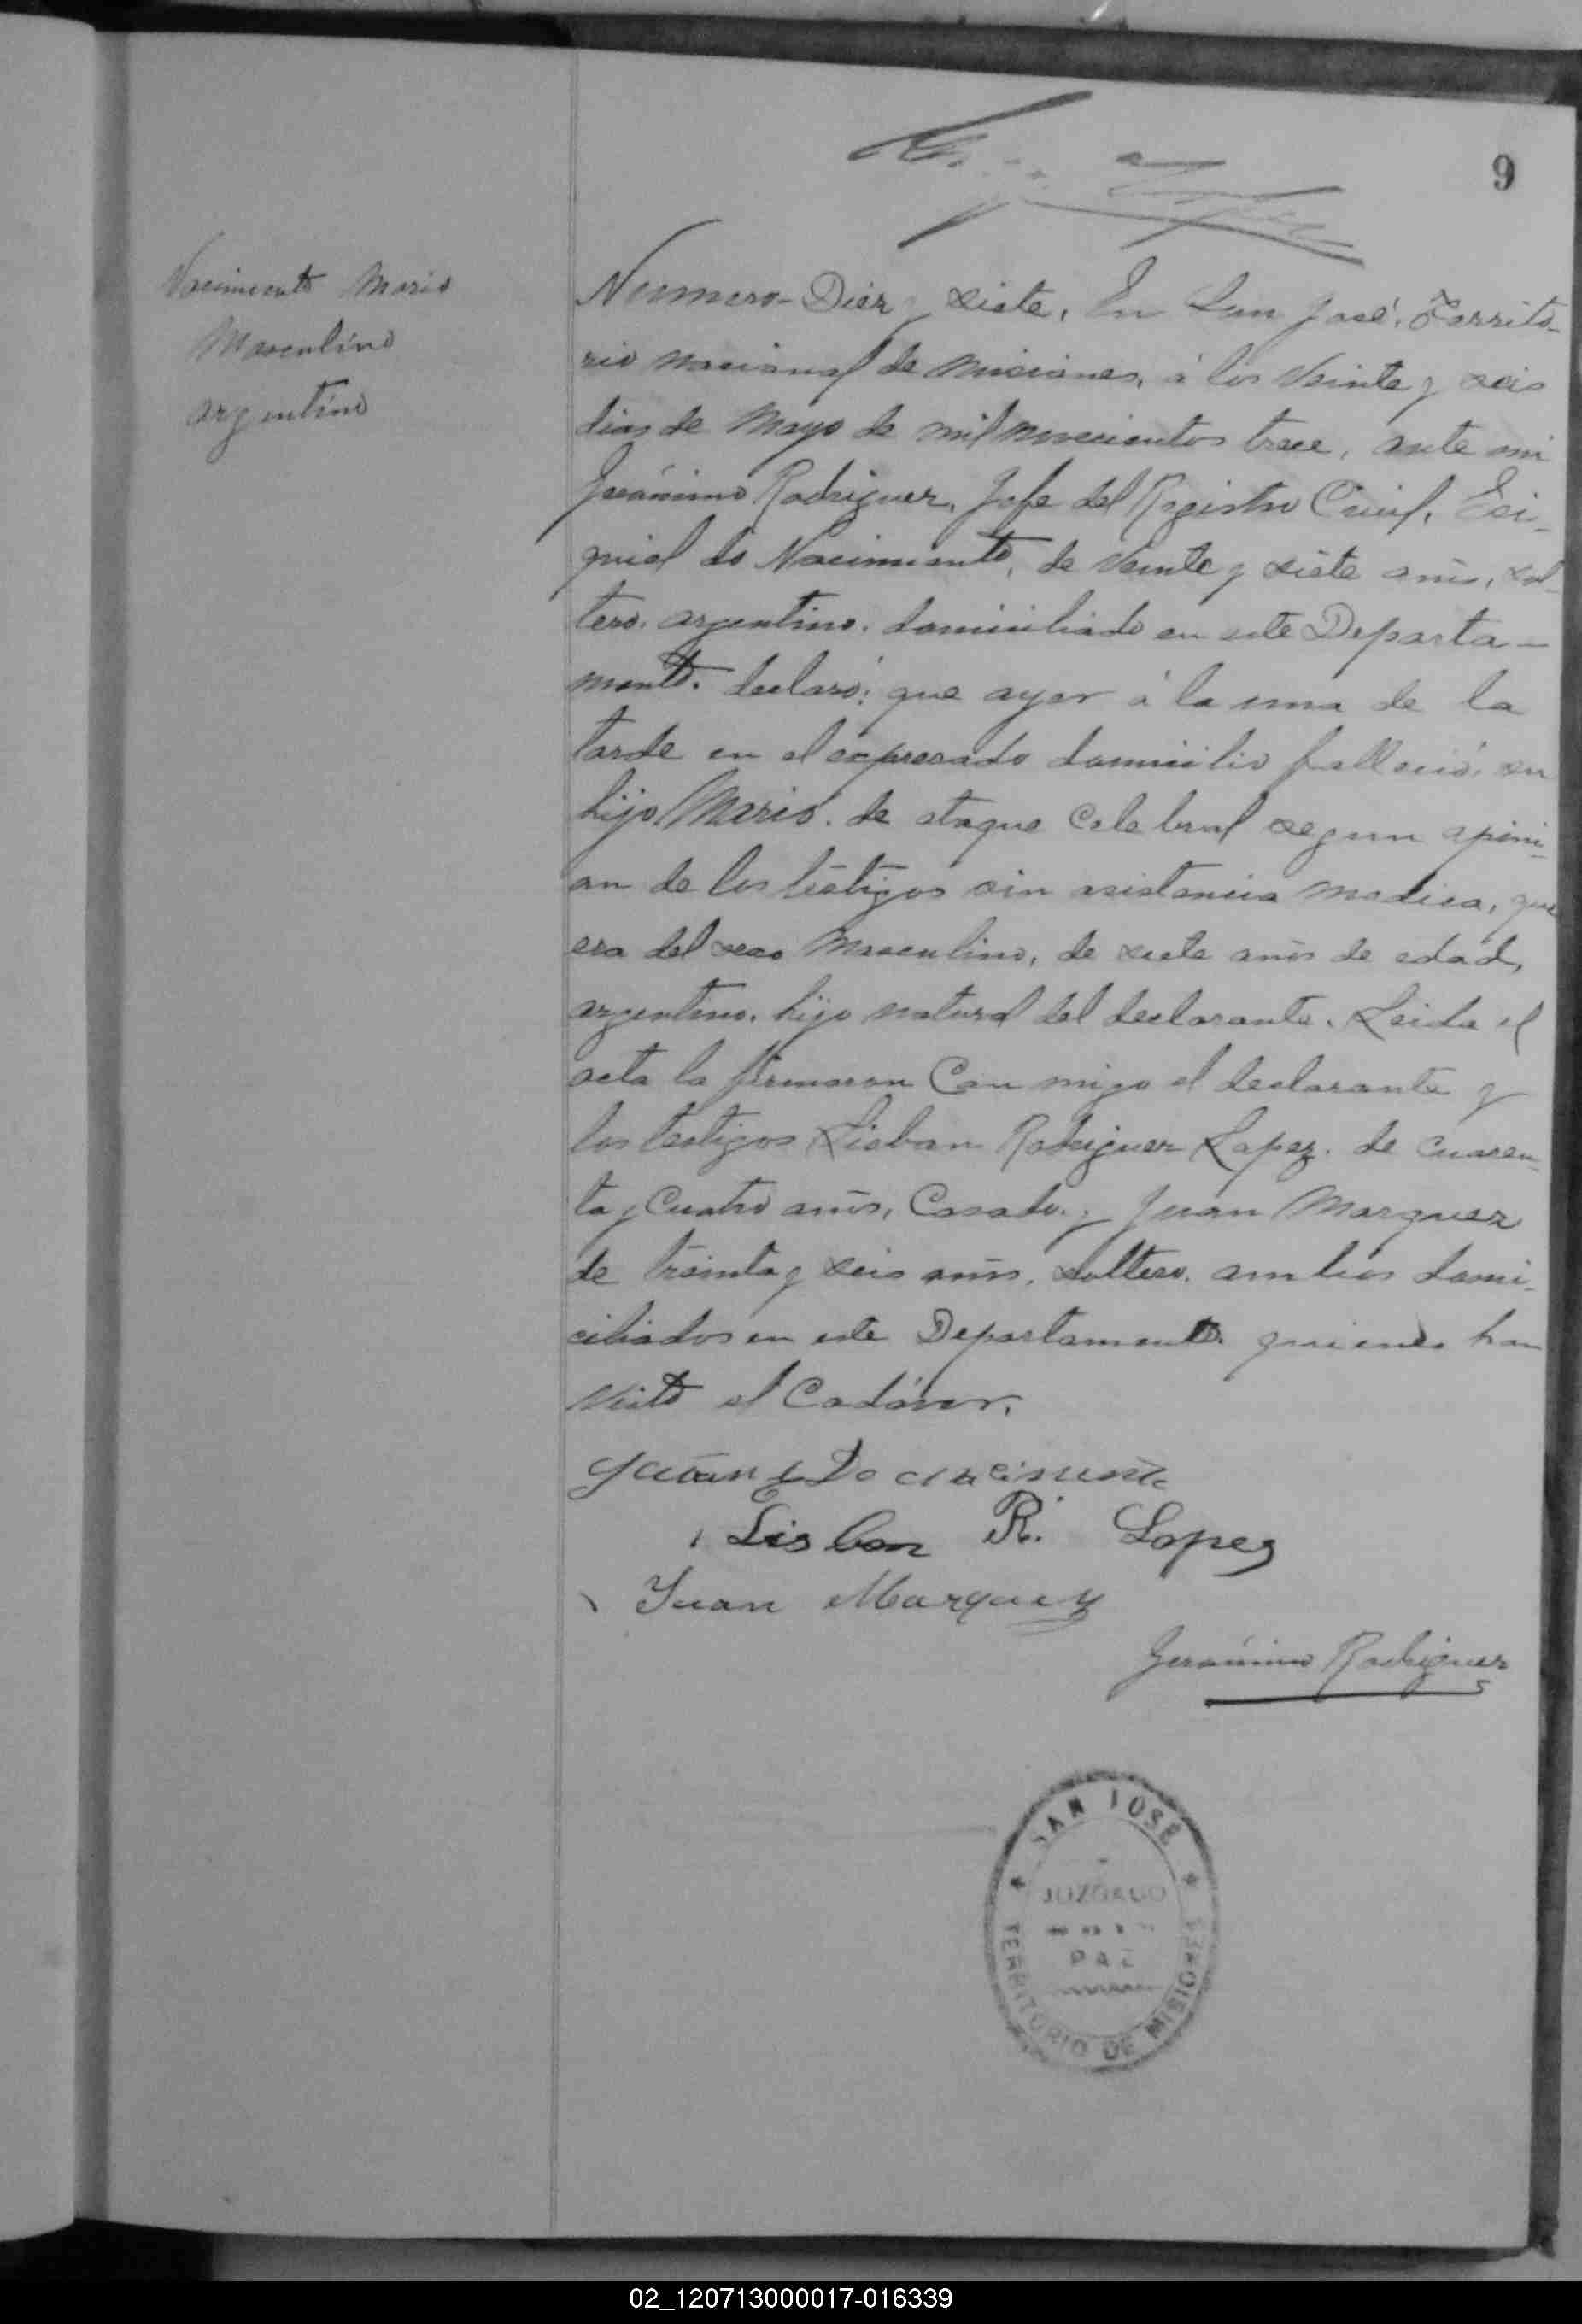 9
Nacimiento Mario
Masculino
argentino
Numero Diez y siete, En San José, Territo-
rio nacional de Misiones, á los Veinte y seis
dias de Mayo de mil novecientos trece, ante mi
Jerónimo Rodriguez, Jefe del Registro Civil, Esi-
quiel do Nacimiento, de Veinte y siete años, sol-
tero, argentino, domiciliado en este Departa-
mento. declaró: que ayer á la una de la
tarde en el expresado domicilio falleció su
hijo Mario. de ataque Celebral segun opini-
on de los testigos sin asistencia medica, que
era del sexo Masculino, de siete años de edad,
argentino, hijo natural del declarante. Leida el
acta la firmaron Con migo el declarante y
los testigos Lisban Rodriguez Lopez. de cuaren-
ta y Cuatro años, Casado y Juan Marquez
de treinta y seis años, soltero, ambos domi-
ciliados en este Departamento quienes han
visto el Cadáver.
Lisban R. Lopez
Juan Marquez
Jerónimo Rodriguez
SAN JOSÉ
JUZGADO
PAZ
TERRITORIO DE MISIONES
02_120713000017-016339